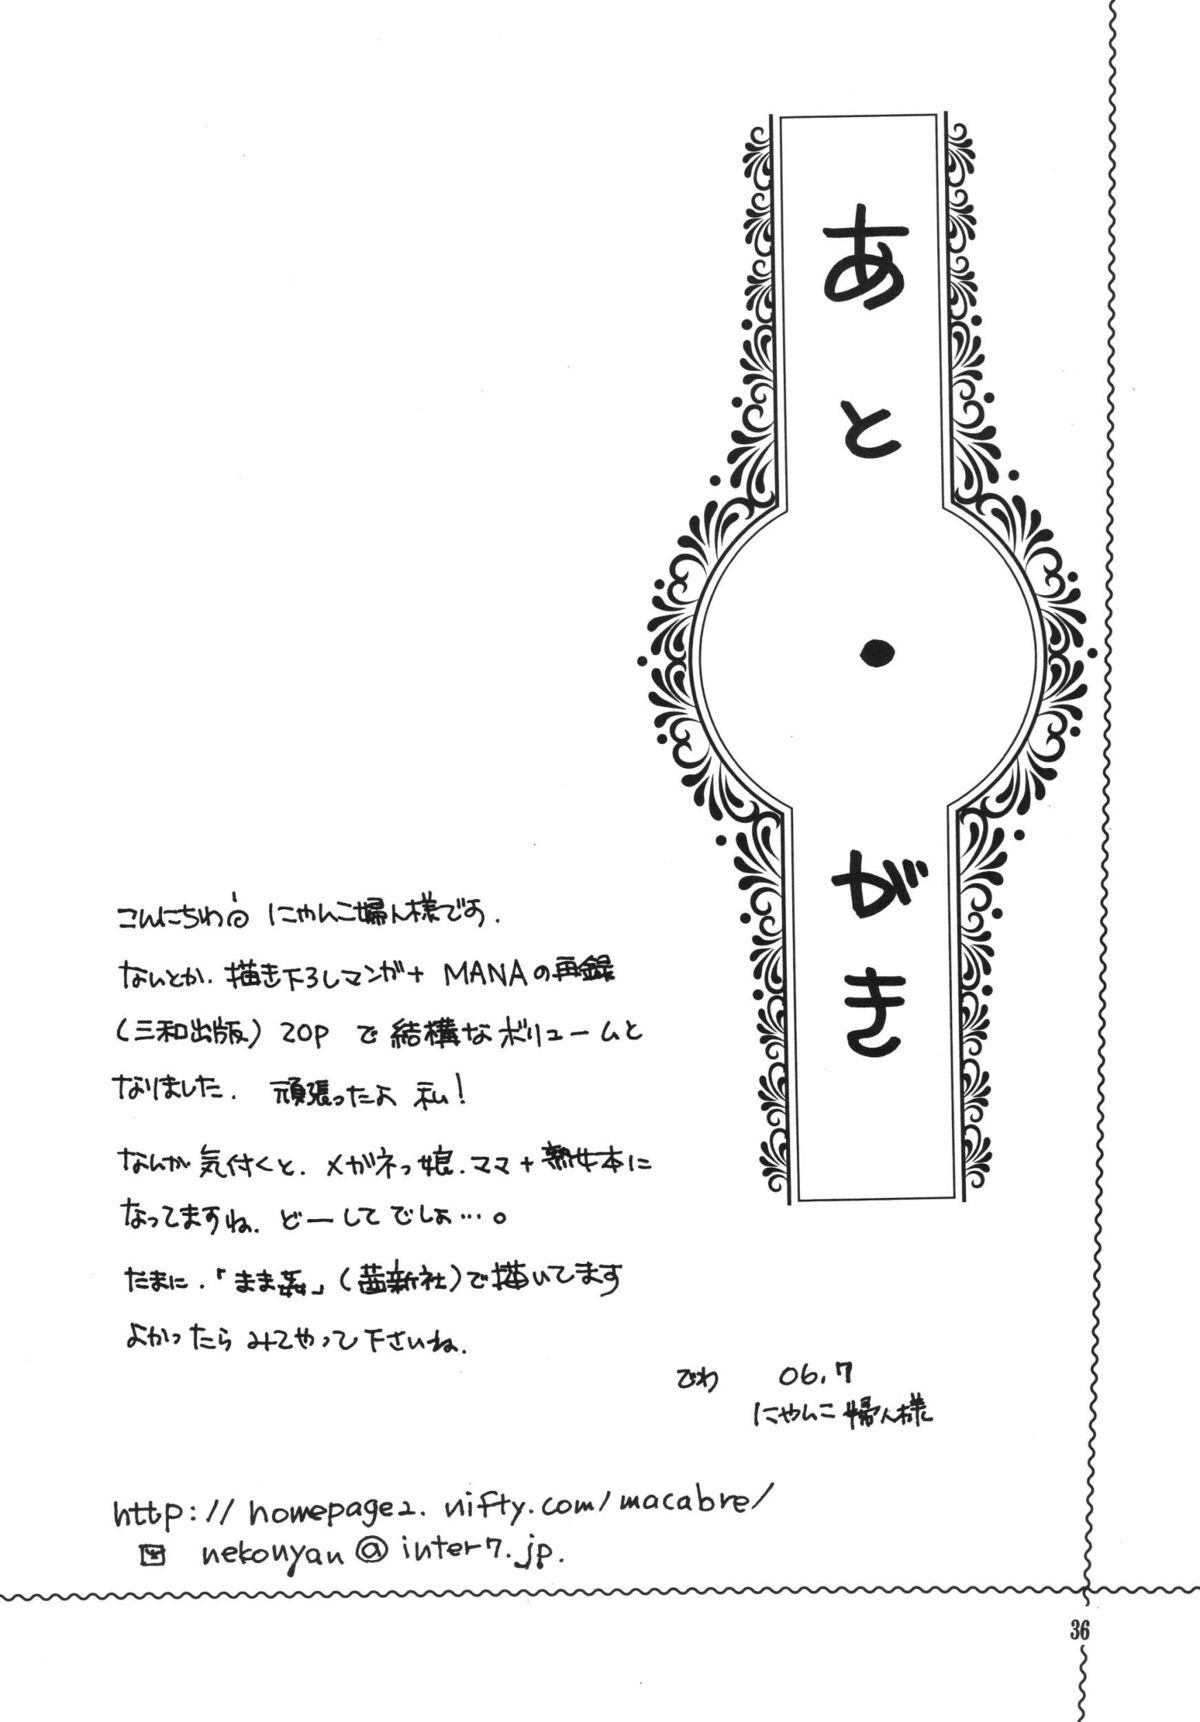 あと・がき
こんにちわ にゃんこ婦人様です.
なんとか.描き下ろしマンガ+ MANAの再録
(三和出版) 20P で結構なボリュームと
なりました. 頑張ったよ 私!
なんか気付くと.メガネっ娘.ママ+熟女本に
なってますね. どーしてでしょ…。
たまに.「まま姦」(茜新社)で描いてます
よかったら みてやって下さいね.
でわ 06.7
にゃんこ婦人様
http://homepage2.nifty.com/macabre/
nekonyan@inter7.jp.
36